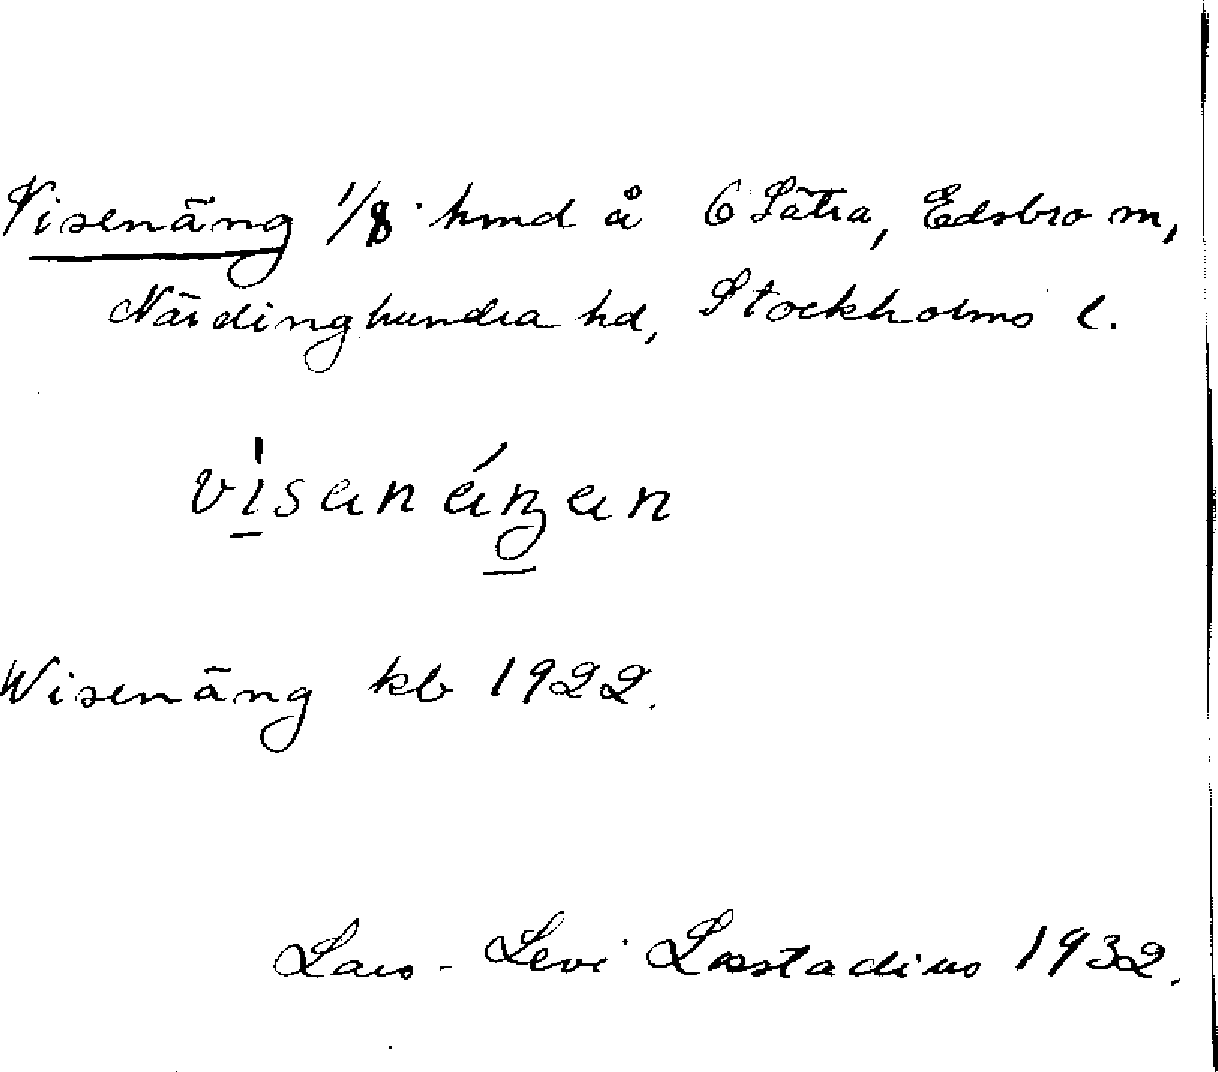 Visenäng 1/8 hmd å 6 Sätra, Edsbro sn,
Närdinghundra hd, Stockholms l.
vi̲sanáŋ̲an
Wisenäng kb 1922.
Lars-Levi Læstadius 1932.